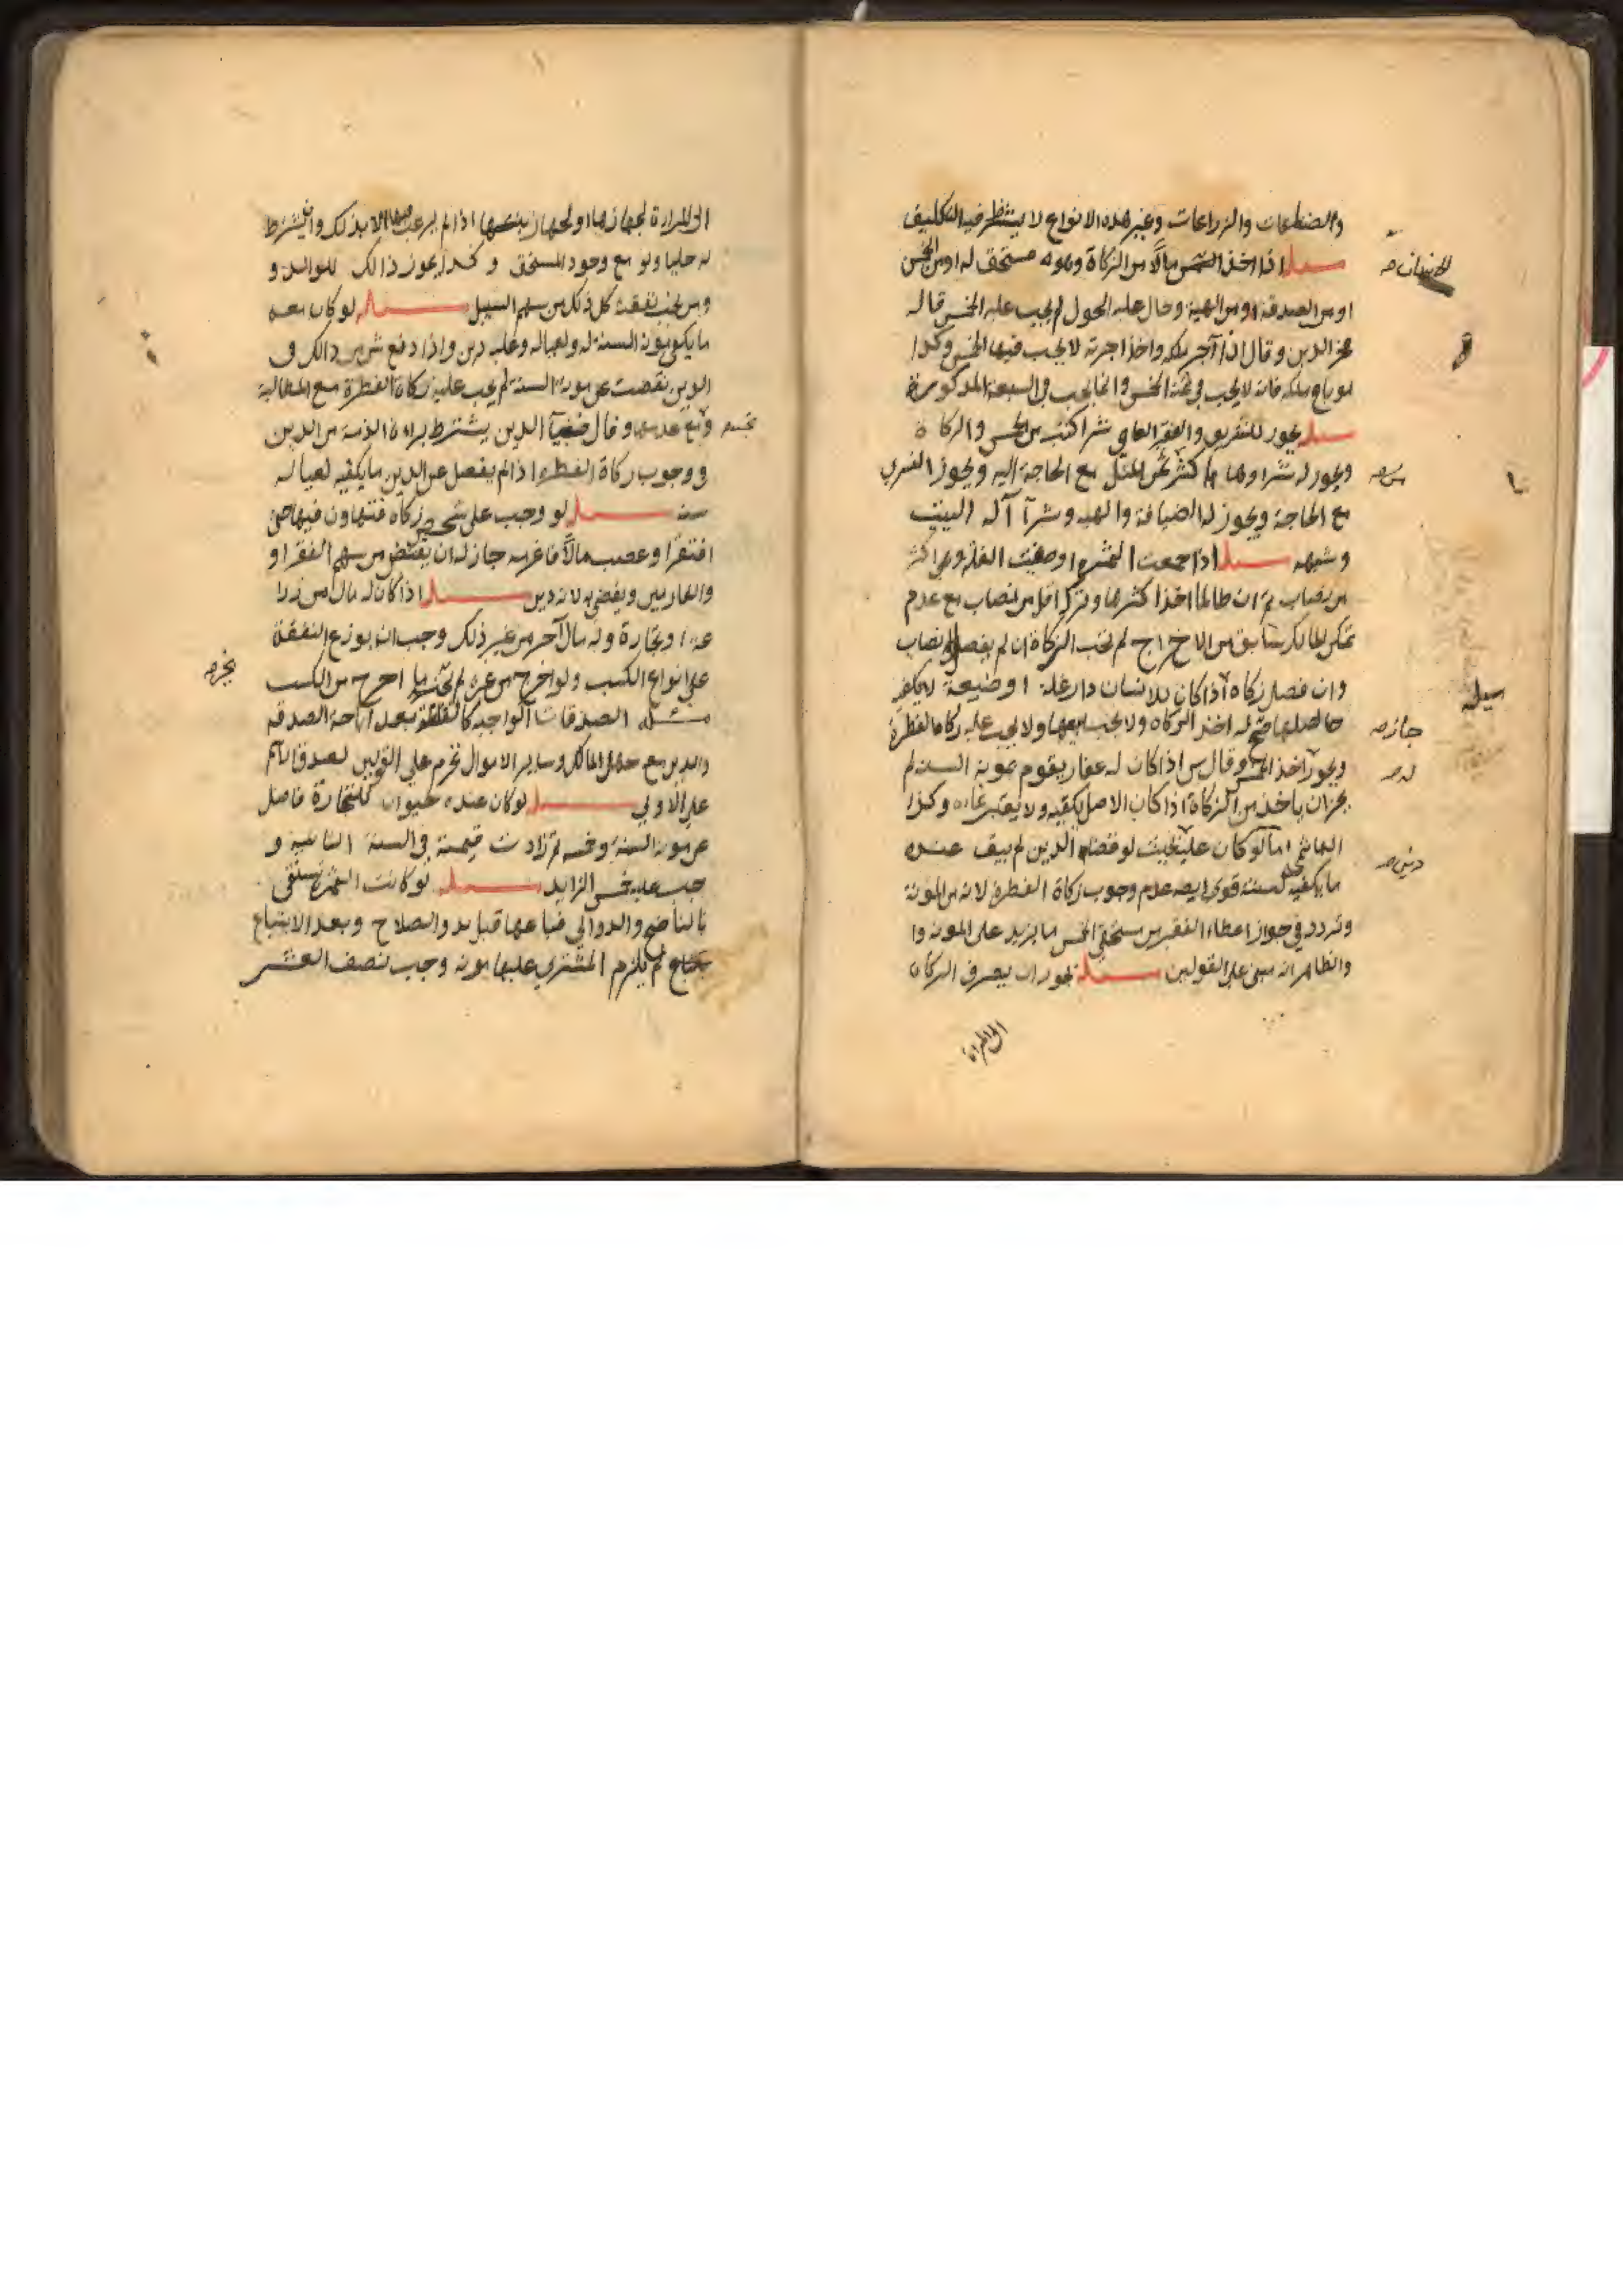 والصناعات والزراعات وغير هذه الانواع لا ينتظر فيه التكليف
مسئلة اذا اخذ مالا من الزكاة وهو مستحق له او من الخمس
الانسان صح
او من الصدقة او من الهبة وحال عليه الحول لم يجب عليه الخمس قاله
فخر الدين وقال اذا آجر ملكه واخذ اجرته لا يجب فيها الخمس وكذا
لو باع ملكه فانه لا يجب في ثمنه الخمس وانما يجب في السبعة المذكورة
مسئلة يجوز للفقير والفقيه العامي شرا كتب من الخمس والزكاة
ويجوز له شراوها باكثر ثمن المثل مع الحاجة اليه ويجوز التسري
من صح
مع الحاجة ويجوز له الضيافة والهبه وشرآ آلة البيت
وشبهه مسئلة اذا جمعت الثمره او صفيت الغله وهي اكثر
من نصاب ثم ان ظالما اخذ اكثرها وترك اقل من نصاب مع عدم
تمكن المالك سابق من الاخراج لم تجب الزكاة ان لم يفضل نصاب
وان فضل زكاه اذا كان للانسان دار غلة او ضيعة لا يكفيه
مسئلة
حاصلها له اخذ الزكاه ولا يجب بيعها ولا يجب عليه زكاه الفطرة
جاز صح
ويجوز اخذ الخمس وقال س اذا كان له عقار يقوم بمونة السنه لم
له صح
يجز ان ياخذ من الزكاة اذا كان الاصل يكفيه ولا يعتبر نماءه وكذا
الهاشمي اما لو كان عليه بحيث لو قضاه الدين لم يبق عنده
دين صح
ما يكفيه لسنته قوى ايضه عدم وجوب زكاة الفطرة لانه من المؤنة
وتردد في جواز اعطاء الفقير من مستحقي الخمس ما يزيد على المونه وا
والظاهر انه مبني على القولين مسئلة يجوز ان يصرف الزكاة
الى المراة
الى المراة لجهازها او لجهاز بنتها اذا لم يرغب فيها الا بذلك وان يشترط
له حليا ولو مع وجود المستحق وكذا يجوز ذالك للوالد و
ومن تجب نفقته كل ذلك من سهم السبيل مسئلة لو كان معه
ما يكفي مون السنة له ولعياله وعليه دين واذا دفع شي من ذالك في
الدين نقصت عن مونة السنة لم يجب عليه زكاة الفطرة مع المطالبة
ومع عدمها وقال ضيآ الدين يشترط براءة الذمة من الدين
في وجوب زكاة الفطره اذا لم يفضل عن الدين ما يكفيه لعياله
سنه مسئلة لو وجب على شخص زكاه فتهاون فيها حتى
افتقر او غصب مالا فاغرمه جاز له ان يقبض من سهم الفقرا و
والغارمين ويقضي به لانه دين مسئلة اذا كان له مال من زرا
عه او تجارة وله مال آخر من غير ذلك وجب ان يوزع النفقة
على انواع الكسب ولو اخرج من غيره لم ما اخرج من الكسب
يجز صح
مسئله الصدقات الواجبه كاللقطة بعد اباحة الصدقه
والدين مع جهل المالك وساير الاموال تحرم على القولين لصدقة الام
على الاولي مسئلة لو كان عنده حيوان للتجارة فاضل
عن مونه السنة وخمسه ثم زادت قيمته في السنة الثانيه و
جب عليه خمس الزايد مسئلة لو كانت الثمرة تسقى
بالناضح والدوالي فباعها قبل بدو الصلاح وبعد الابتياع
لم يلزم المشتري عليها مونه وجب نصف العشر